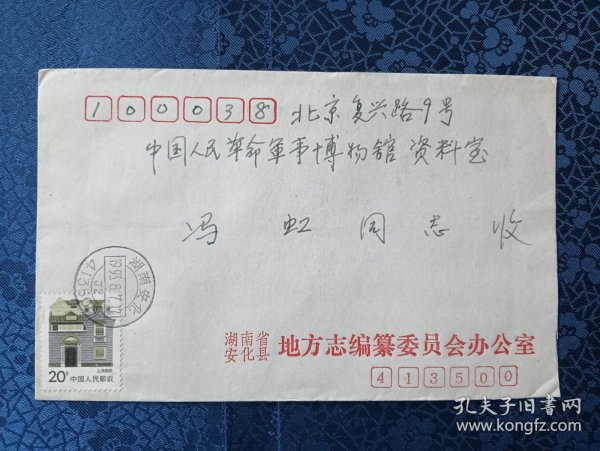 100038 北京复兴路9号
中国人民革命軍事博物館 资料室
冯虹同志 收
湖南安化
湖南省
安化县 地方志编纂委员会办公室
413500
上海民居
20分 中国人民邮政
孔夫子旧书网
www.kongfz.com